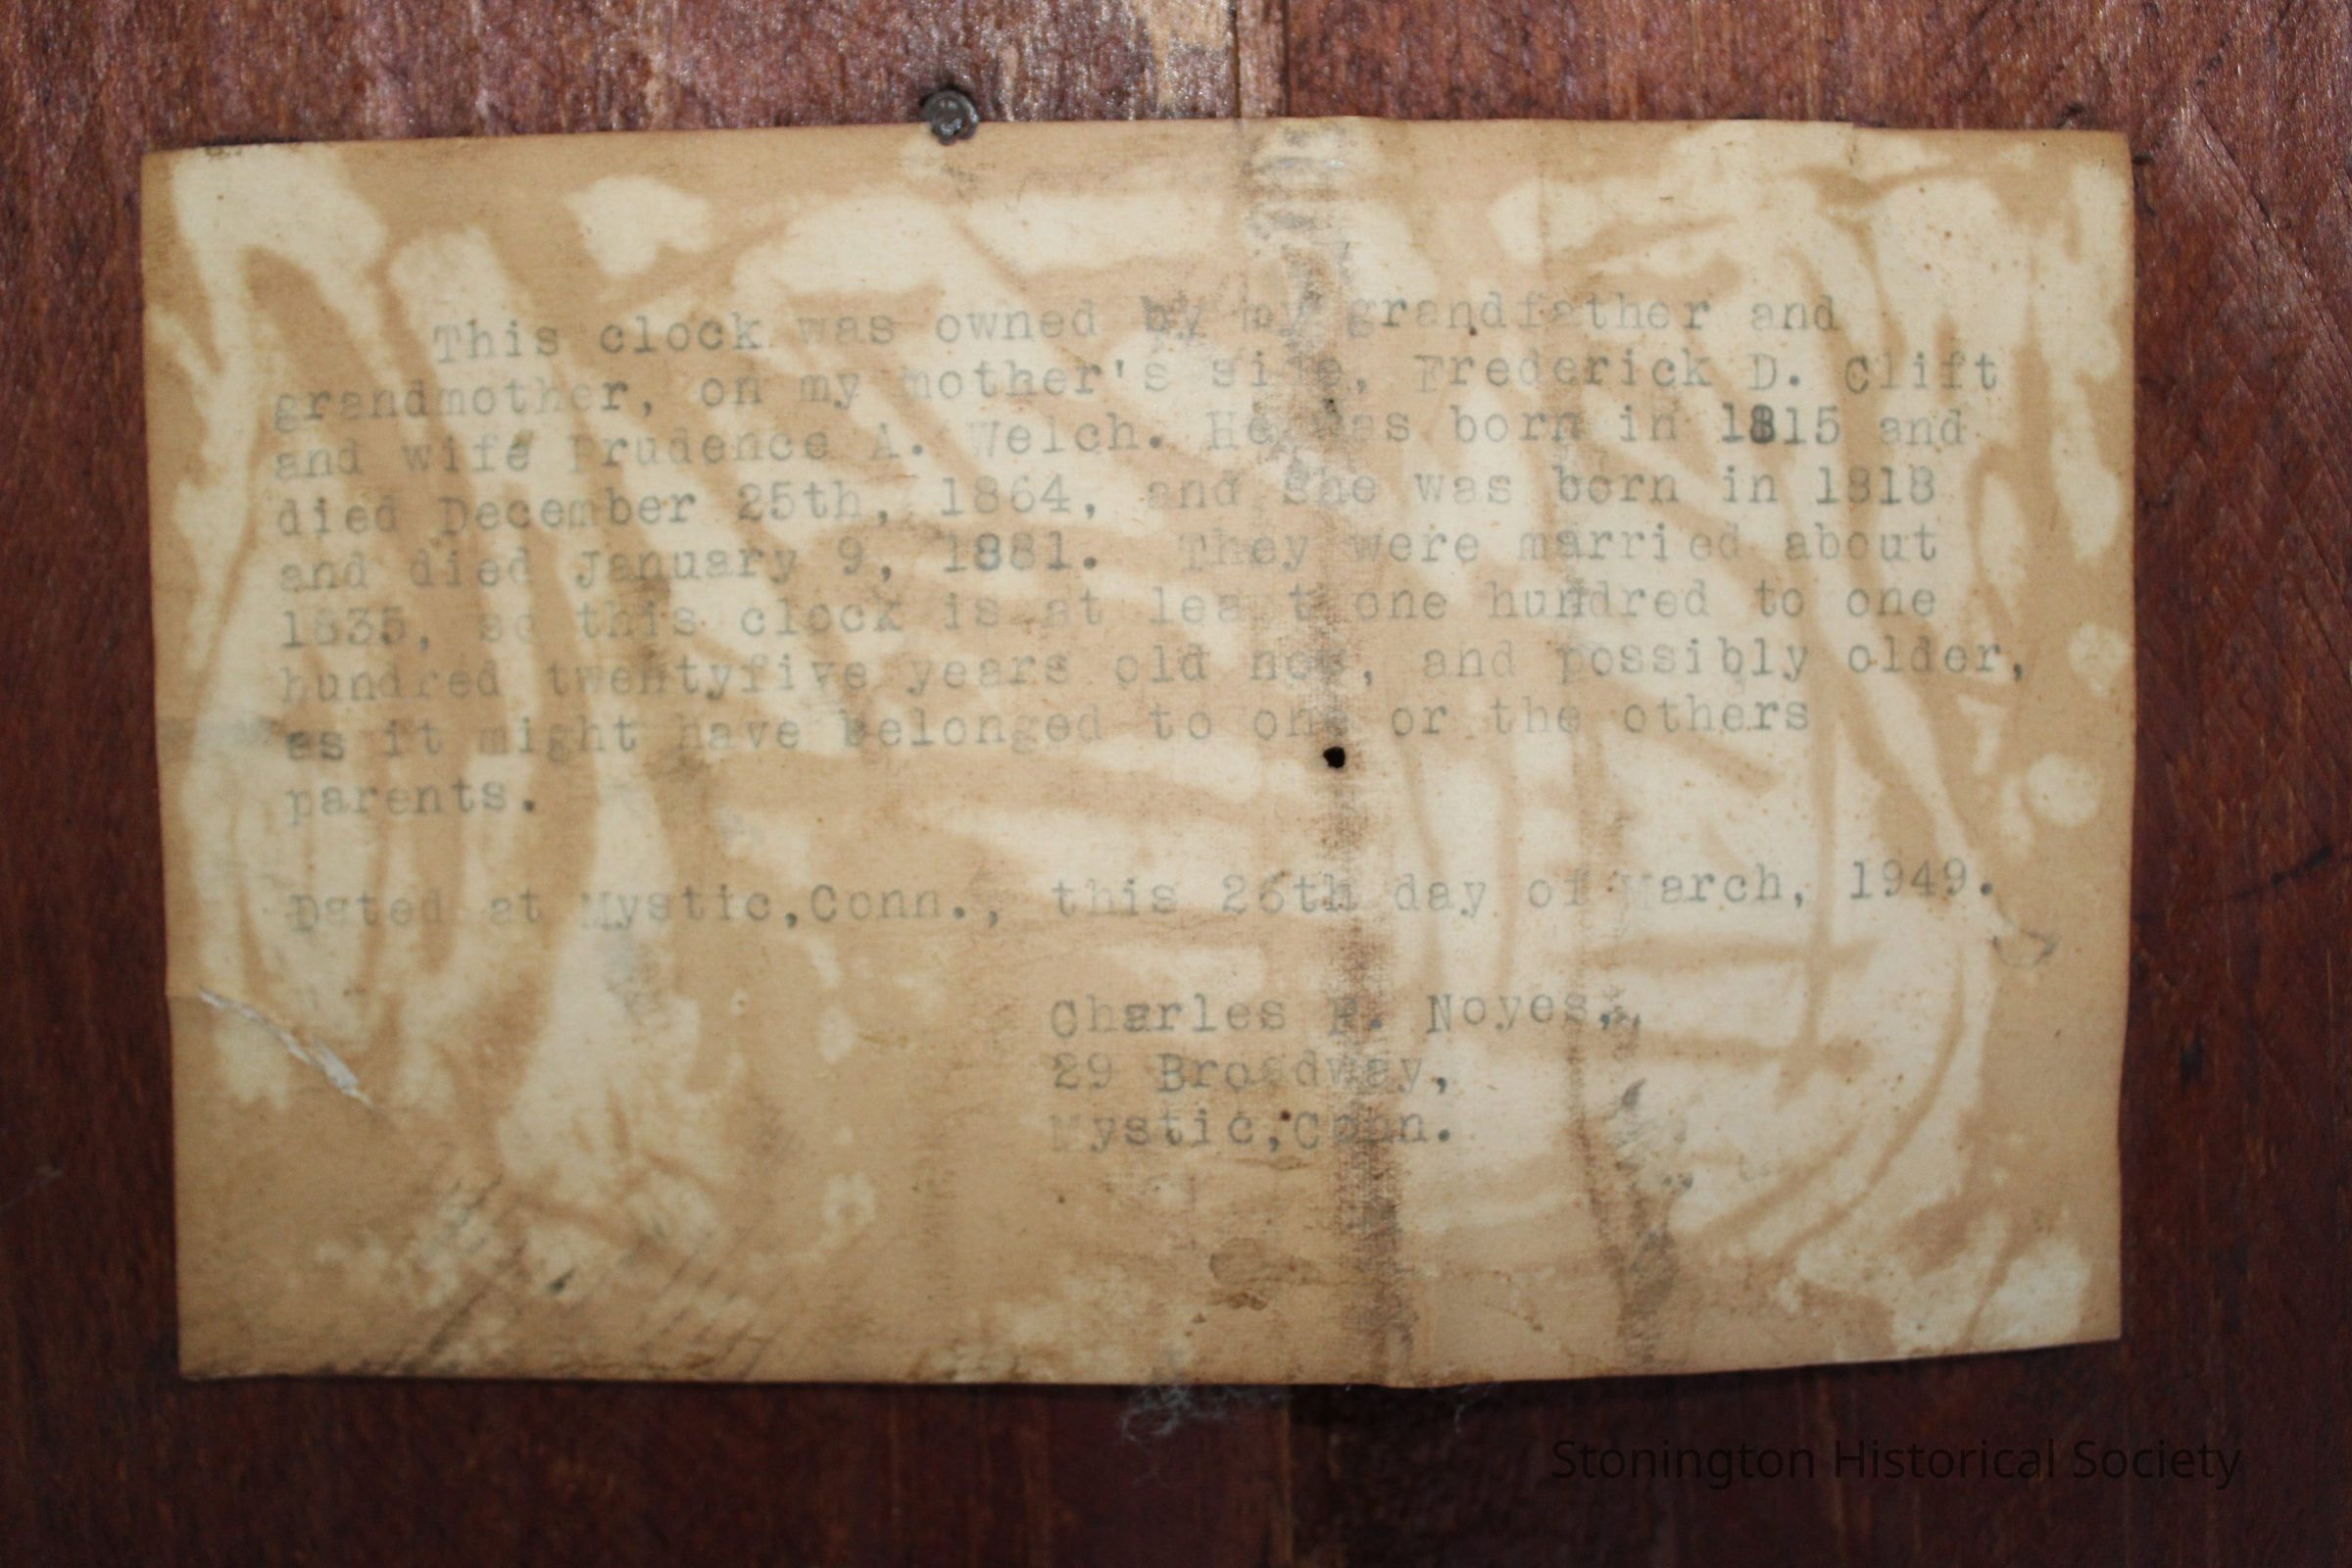 This clock was owned by by grandfather and
grandmother, on my mother's side, Frederick D. Clift
and wife Prudence A. Welch. He was born in 1815 and
died December 25th, 1864, and she was born in 1818
and died January 9, 1881. They were married about
1835, so this clock is at least one hundred to one
hundred twentyfive years old now, and possibly older,
as it might have belonged to one or the others
parents.
Dated at Mystic,Conn., this 26th day of March, 1949.
Charles F. Noyes,,
29 Broadway,
Mystic,Conn.
Stonington Historical Society